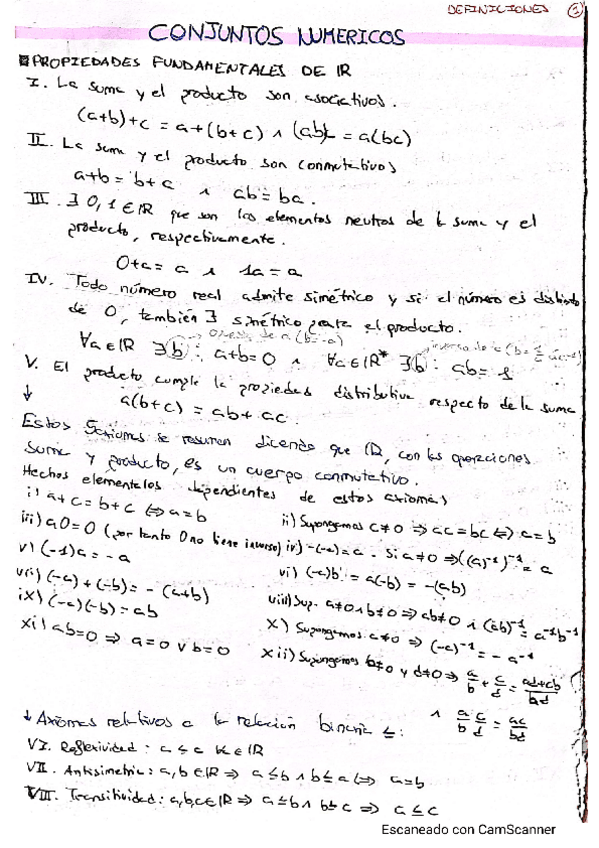 DEFINICIONES 1
CONJUNTOS NUMERICOS
PROPIEDADES FUNDAMENTALES DE IR
I. La suma y el producto son asociativos.
(a+b)+c = a+(b+c) ∧ (ab)c = a(bc)
II. La suma y el producto son conmutativos
a+b = b+a ∧ ab = ba.
III. ∃ 0,1 ∈ IR que son los elementos neutros de la suma y el
producto, respectivamente.
0+a = a ∧ 1a = a
IV. Todo número real admite simétrico y si el número es distinto
de 0, también ∃ simétrico para el producto.
opuesto de a (b=-a) inverso de a
∀a ∈ IR ∃b : a+b=0 ∧ ∀a ∈ IR* ∃b : ab = 1
V. El producto cumple la propiedad distributiva respecto de la suma
a(b+c) = ab + ac.
↓
Estos 5 axiomas se resumen diciendo que IR, con las operaciones
suma y producto, es un cuerpo conmutativo.
Hechos elementales dependientes de estos axiomas
i) a+c = b+c ⇔ a=b ii) Supongamos c≠0 ⇒ ac = bc ⇔ a=b
iii) a0=0 (por tanto 0 no tiene inverso) iv) -(-a)=a. Si a≠0 ⇒ ((a)⁻¹)⁻¹ = a
v) (-1)a = -a vi) (-a)b = a(-b) = -(ab)
vii) (-a)+(-b) = -(a+b) viii) Sup. a≠0 ∧ b≠0 ⇒ ab≠0 ∧ (ab)⁻¹ = a⁻¹b⁻¹
ix) (-a)(-b) = ab x) Supongamos a≠0 ⇒ (-a)⁻¹ = -a⁻¹
xi) ab=0 ⇒ a=0 ∨ b=0 xii) Supongamos b≠0 y d≠0 ⇒ a/b + c/d = ad+cb/bd
∧ a/b c/d = ac/bd
↓ Axiomas relativos a la relación binaria ≤:
VI. Reflexividad: a ≤ a ∀a ∈ IR
VII. Antisimetria: a,b ∈ IR ⇒ a ≤ b ∧ b ≤ a ⇔ a=b
VIII. Transitividad: a,b,c ∈ IR ⇒ a ≤ b ∧ b ≤ c ⇒ a ≤ c
Escaneado con CamScanner